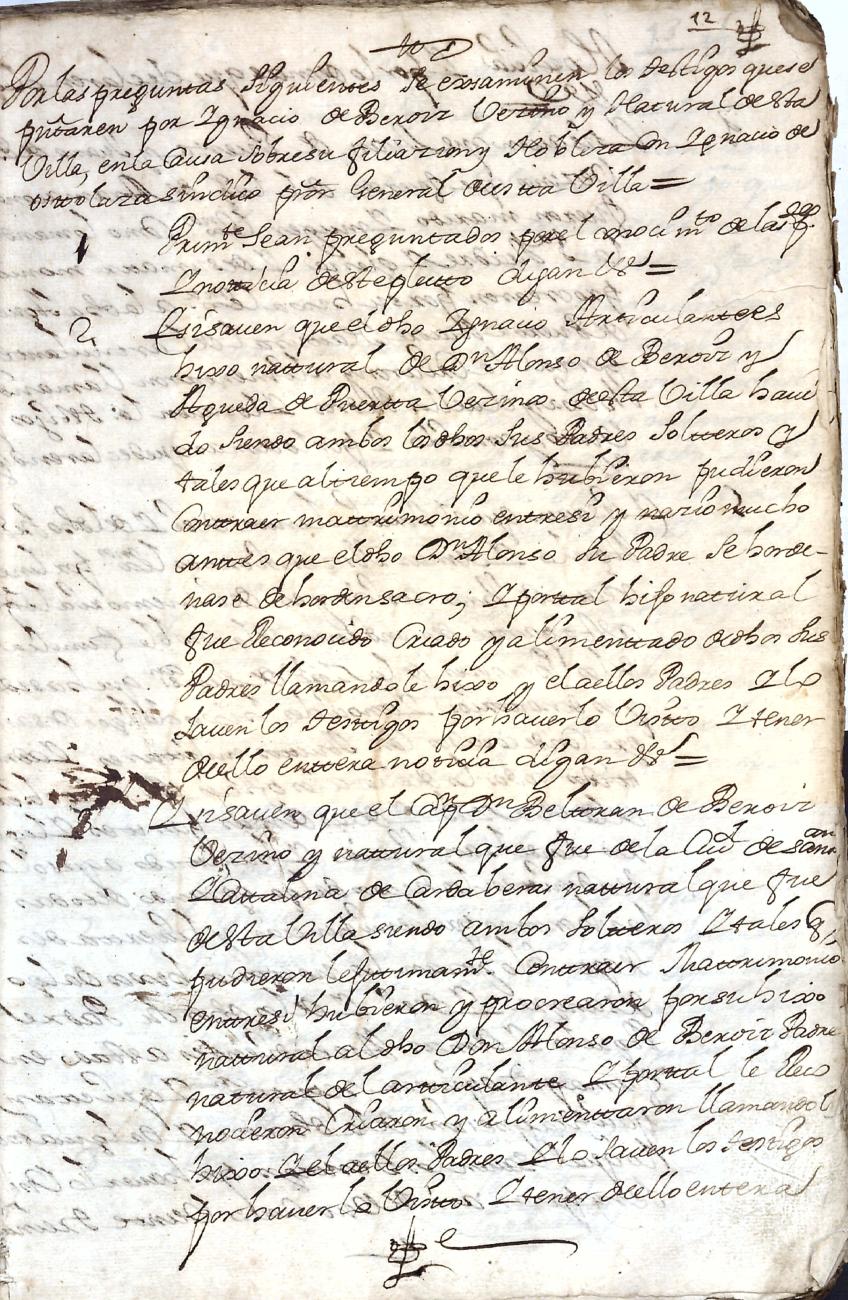 12
Por las preguntas siguientes se exsaminen los testigos que se
pntaren por Ygnacio de Beroiz Vezino y Natural desta
Villa, en la Causa sobre su filiazion y Nobleza con Ygnacio de
ostolaza sindico pror General desta Villa =
1 Primte Sean preguntados por el conocimto de las
Y noticia deste pleito digan &a =
2 Y si saven que el dho Ygnacio Articulante es
hixo natural de Dn Alonso de Beroiz y
Agueda de Puertta Vezina desta Villa havi
do siendo ambos los dhos sus Padres solteros y
tales que al tiempo que le hubieron pudieron
Contraer mattrimonio entresi y nazio mucho
anttes que el dho Dn Alonso su Padre se horde-
nase de horden sacro; Y por tal hijo natural
fue Reconocido Criado y alimenttado de dhos sus
Padres llamandole hixo y el a ellos Padres Y lo
saven los testigos por haverlo Visto Y tener
de ello enttera noticia digan &a =
3 Y si saven que el Capn Dn Beltran de Beroiz
Vezino y nattural que fue de la Ciud de San
Y Cattalina de Cardabera nattural que fue
desta Villa siendo ambos solteros Y tales q
pudieron lexitimamte Conttraer Mattrimonio
entresi hubieron y procrearon por su hixo
nattural al dho Don Alonso de Beroiz Padre
natural del articulante Y por tal le Reco
nocieron Criaron y alimenttaron llamandol
hixo Y el a ellos Padres Y lo saven los testigos
por haverlo Visto Y tener de ello entera